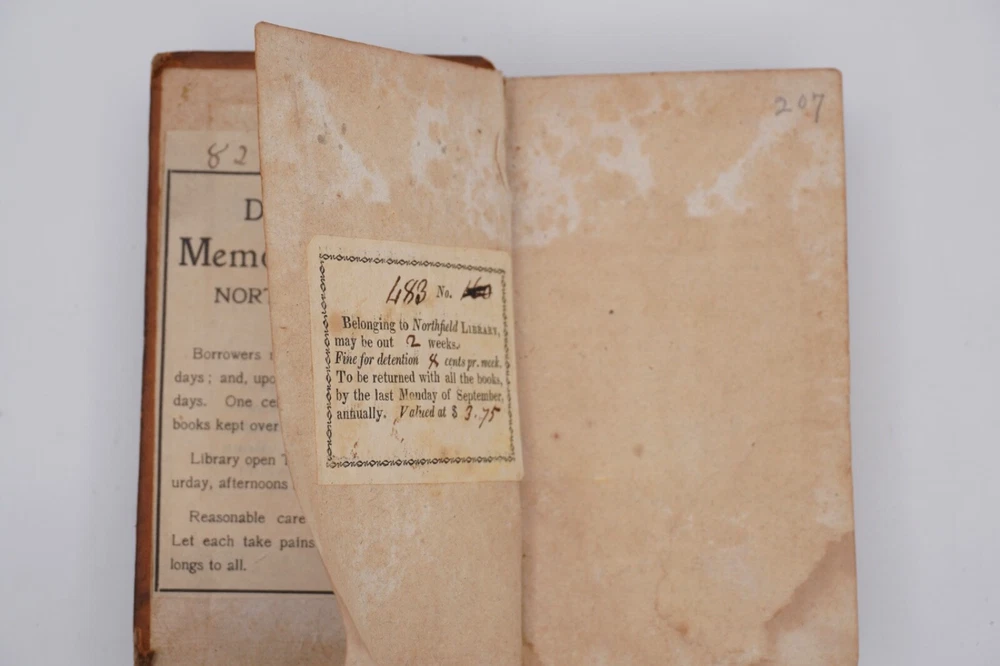 82
D
Memo
NORT
Borrowers
days; and, upo
days. One ce
books kept over
Library open T
urday, afternoons
Reasonable care
Let each take pains
longs to all.
483 No.
Belonging to Northfield LIBRARY,
may be out 2 weeks.
Fine for detention 8 cents pr. week.
To be returned with all the books,
by the last Monday of September,
annually. Valued at $ 3.75
207